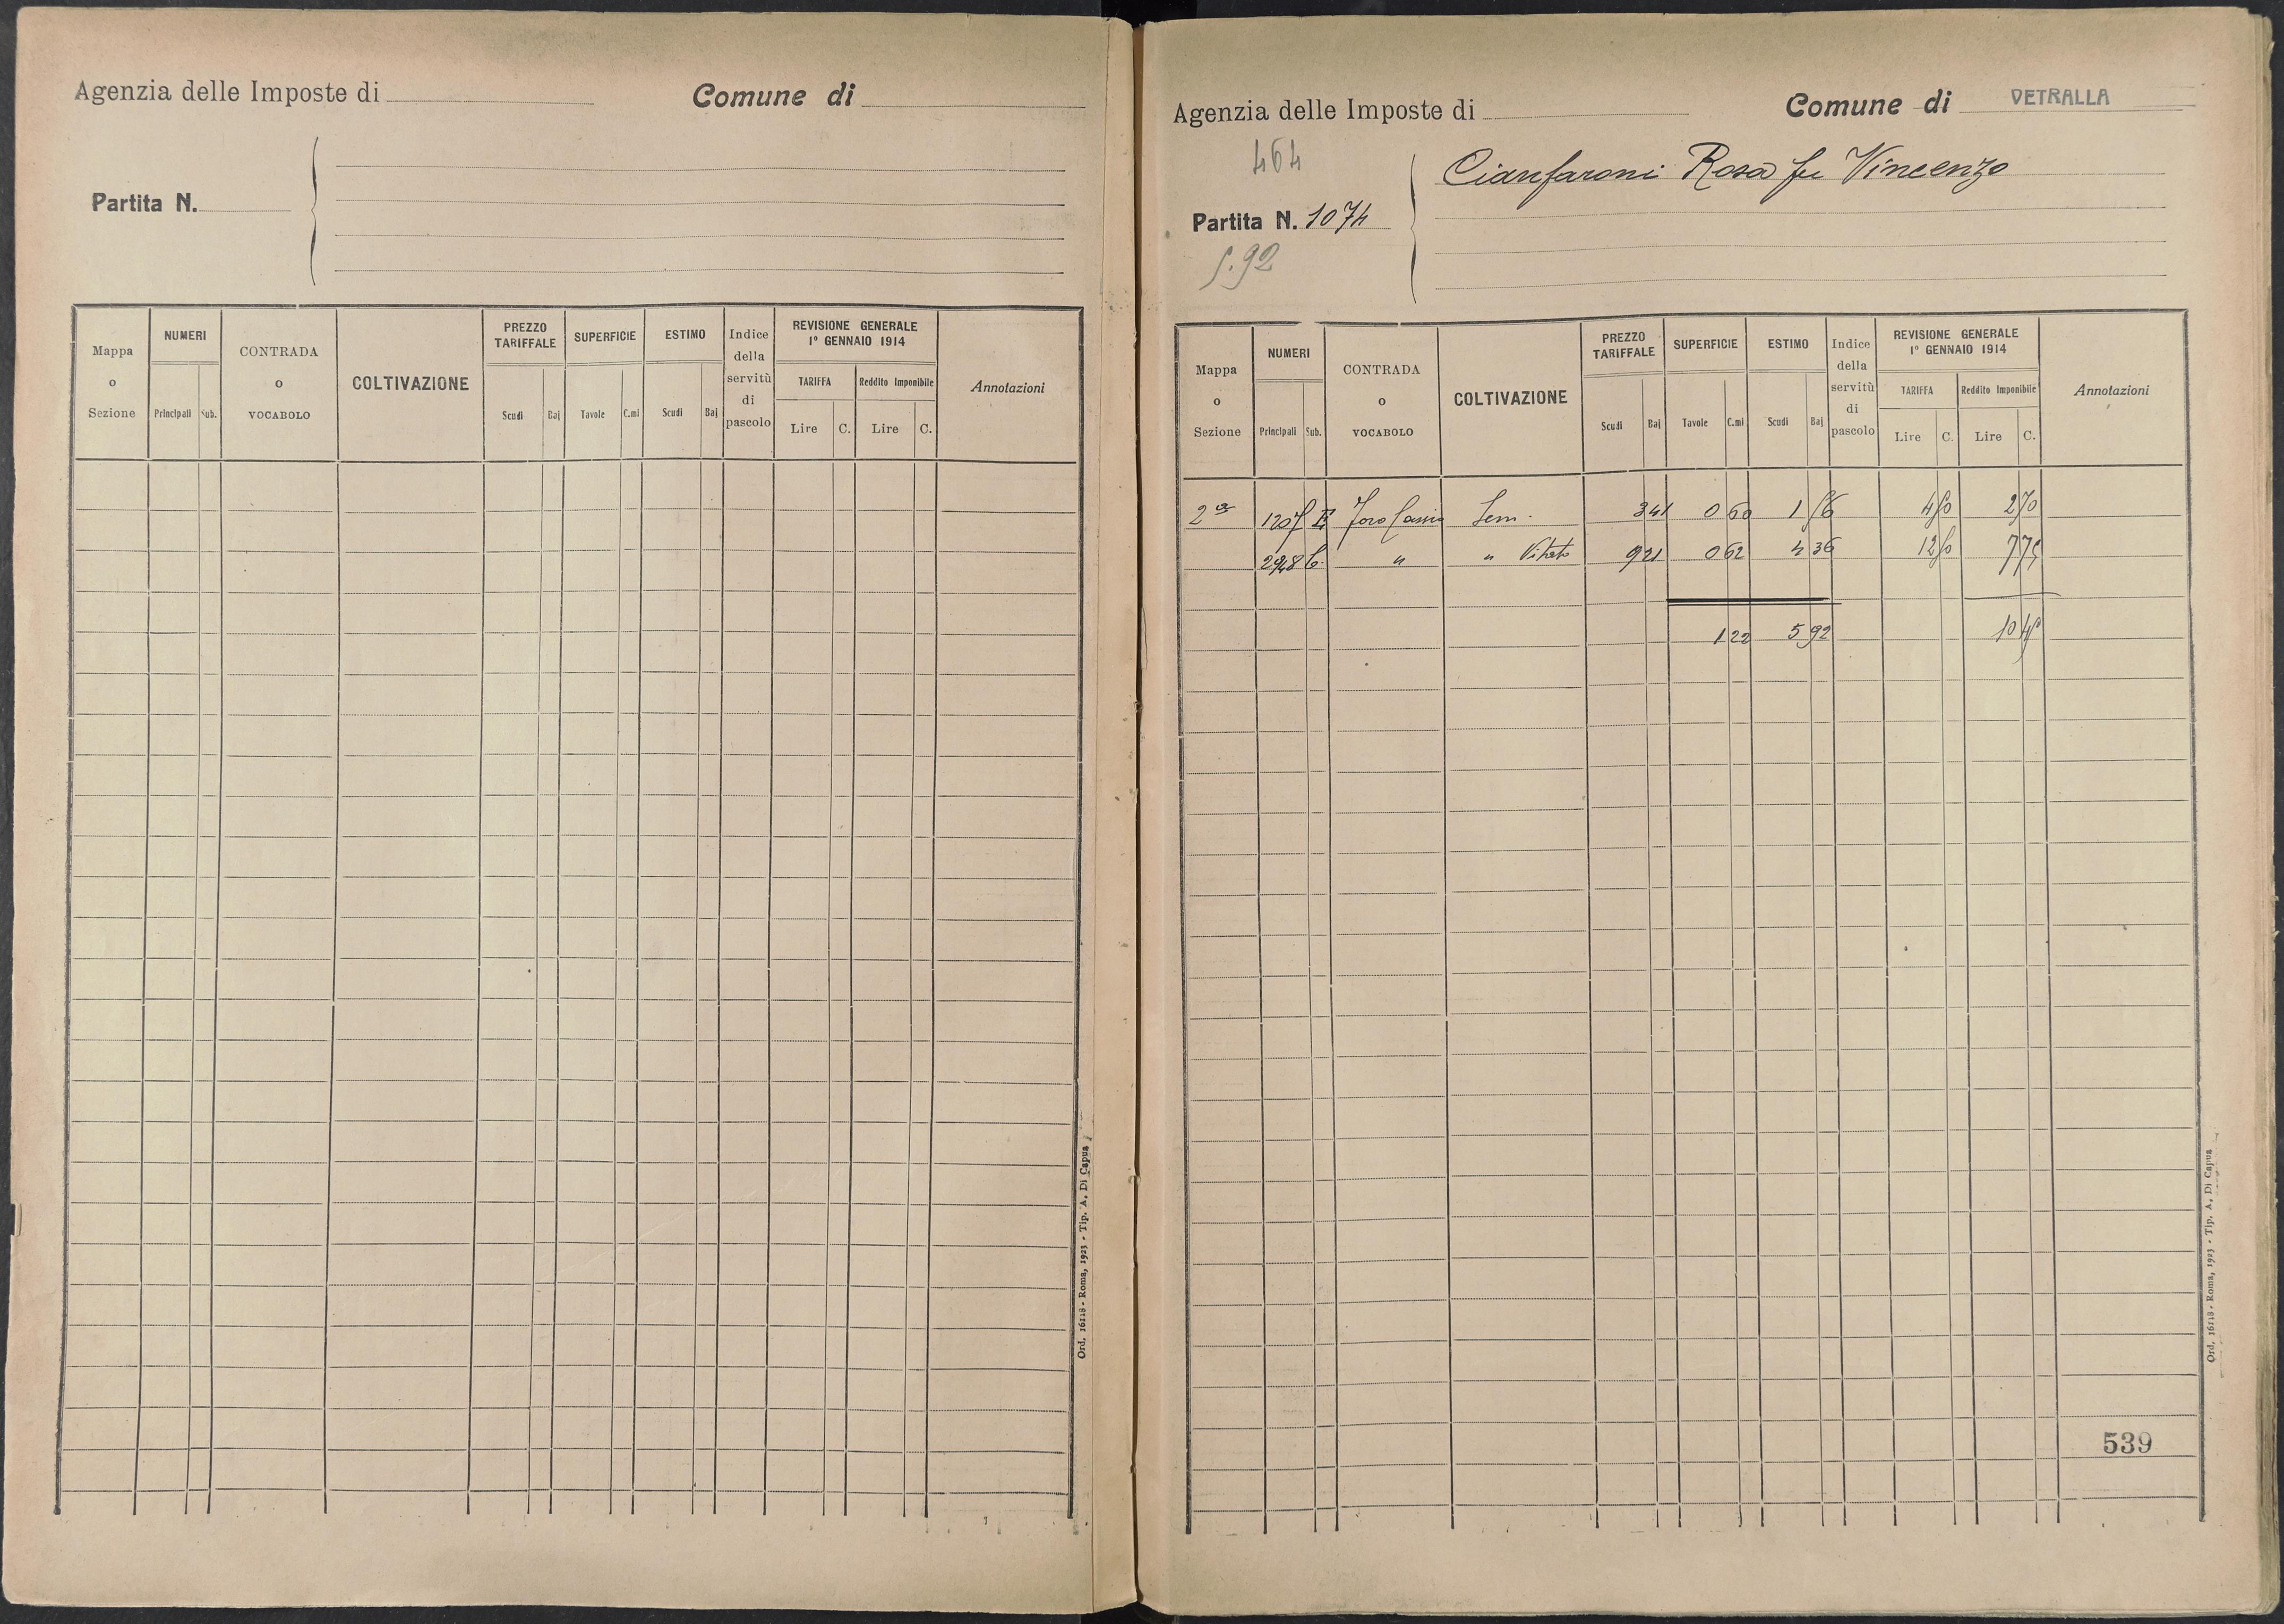 Agenzia delle Imposte di
Comune di
Partita N.
Mappa o Sezione
NUMERI
Principali Sub.
CONTRADA o VOCABOLO
COLTIVAZIONE
PREZZO TARIFFALE
Scudi Baj
SUPERFICIE
Tavole C.mi
ESTIMO
Scudi Baj
Indice della servitù di pascolo
REVISIONE GENERALE
1º GENNAIO 1914
TARIFFA Reddito Imponibile
Lire C. Lire C.
Annotazioni
Ord. 16118 - Roma, 1923 - Tip. A. Di Capua
Agenzia delle Imposte di
Comune di VETRALLA
464
Cianfaroni Rosa fu Vincenzo
Partita N. 1074
5.92
Mappa o Sezione
NUMERI
Principali Sub.
CONTRADA o VOCABOLO
COLTIVAZIONE
PREZZO TARIFFALE
Scudi Baj
SUPERFICIE
Tavole C.mi
ESTIMO
Scudi Baj
Indice della servitù di pascolo
REVISIONE GENERALE
1º GENNAIO 1914
TARIFFA Reddito Imponibile
Lire C. Lire C.
Annotazioni
2ª Foro Cassio Sem. 3 41 0 60 1 56 4 50 2 70
2948 " " Vitato 9 21 0 62 4 36 12 50 7 75
1 22 5 92 10 45
539
Ord. 16118 - Roma, 1923 - Tip. A. Di Capua